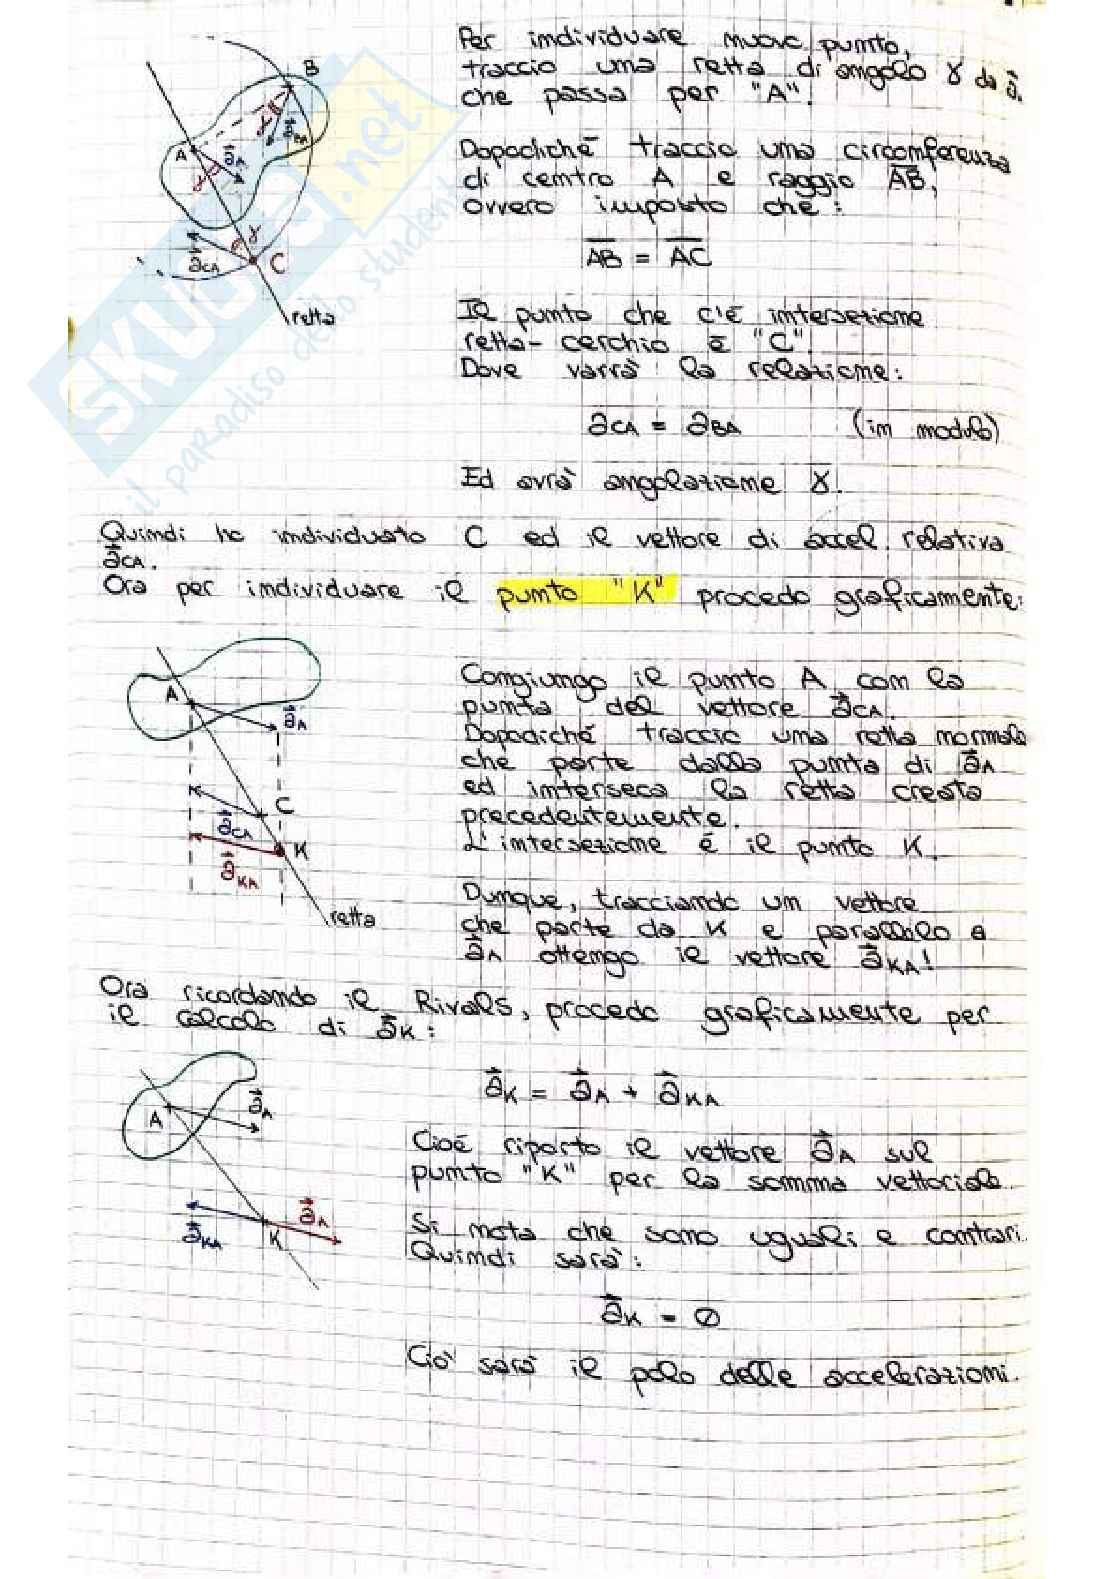 Per individuare nuovo punto,
traccio una retta di angolo γ da a⃗
che passa per "A".
Dopodiché traccio una circonferenza
di centro A e raggio A̅B̅,
ovvero imposto che:
A̅B̅ = A̅C̅
Il punto che c'é intersezione
retta-cerchio é "C"
Dove varrà la relazione:
aCA = aBA (in modulo)
Ed avrà angolazione γ.
Quindi ho individuato C ed il vettore di accel. relativa
a⃗CA.
Ora per individuare il punto "K" procedo graficamente:
Congiungo il punto A con la
punta del vettore a⃗CA.
Dopodiché traccio una retta normale
che parte dalla punta di a⃗A
ed interseca la retta creata
precedentemente.
L'intersezione é il punto K.
Dunque, tracciando un vettore
che parte da K e parallelo a
a⃗A ottengo il vettore a⃗KA!
Ora ricordando il Rivals, procedo graficamente per
il calcolo di a⃗K:
a⃗K = a⃗A + a⃗KA
Cioé riporto il vettore a⃗A sul
punto "K" per la somma vettoriale
Si nota che sono uguali e contrari.
Quindi sarà:
a⃗K = ∅
Ciò sarà il polo delle accelerazioni.
B
A
γ
γ
a⃗A
a⃗BA
a⃗CA
γ
C
retta
A
a⃗A
C
a⃗CA
K
a⃗KA
retta
A
a⃗A
a⃗A
a⃗KA
K
SKUOLA.net
il paradiso dello studente